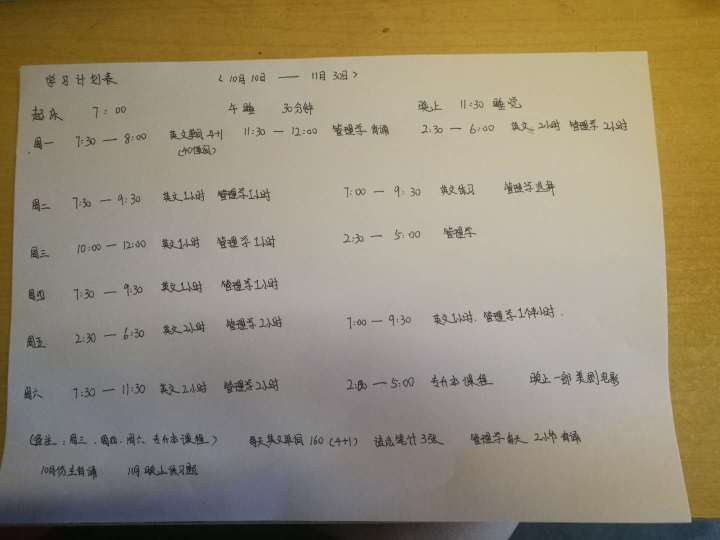 学习计划表 (10月10日 —— 11月30日)
起床 7:00 午睡 30分钟 晚上 11:30 睡觉
周一 7:30 — 8:00 英文单词 4+1 11:30 — 12:00 管理学 背诵 2:30 — 6:00 英文 2小时 管理学 2小时
(40单词)
周二 7:30 — 9:30 英文1小时 管理学1小时 7:00 — 9:30 英文练习 管理学选择
周三 10:00 — 12:00 英文1小时 管理学1小时 2:30 — 5:00 管理学
周四 7:30 — 9:30 英文1小时 管理学1小时
周五 2:30 — 6:30 英文2小时 管理学2小时 7:00 — 9:30 英文1小时. 管理学1个半小时.
周六 7:30 — 11:30 英文2小时 管理学2小时 2:00 — 5:00 专升本课程 晚上一部美剧电影
(备注:周三.周四.周六 专升本课程) 每天英文单词 160 (4+1) 语法笔记3张 管理学每天 2小节 背诵
10月份主背诵 11月 晚上练习题